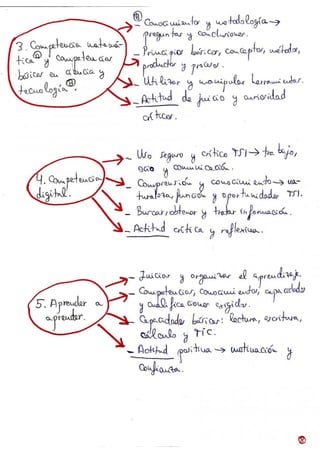 Ⓑ
- Conocimiento y metodología →
preguntas y conclusiones.
3. Competencia matemá-
tica Ⓐ y competencias
básicas en ciencia y
tecnología. Ⓑ
- Principios básicos, conceptos, métodos,
productos y procesos.
- Utilizar y manipular herramientas.
- Actitud de juicio y curiosidad
críticos.
4. Competencia
digital.
- Uso seguro y crítico TSI → trabajo,
ocio y comunicación.
- Comprensión y conocimiento → na-
turaleza, función y oportunidades TSI.
- Buscar, obtener y tratar información.
- Actitud crítica y reflexiva.
5. Aprender a
aprender.
- Iniciar y organizar el aprendizaje.
- Competencias, conocimientos, capacidades
y cualificaciones exigidas.
- Capacidades básicas: lectura, escritura,
cálculo y TIC.
- Actitud positiva → motivación y
confianza.